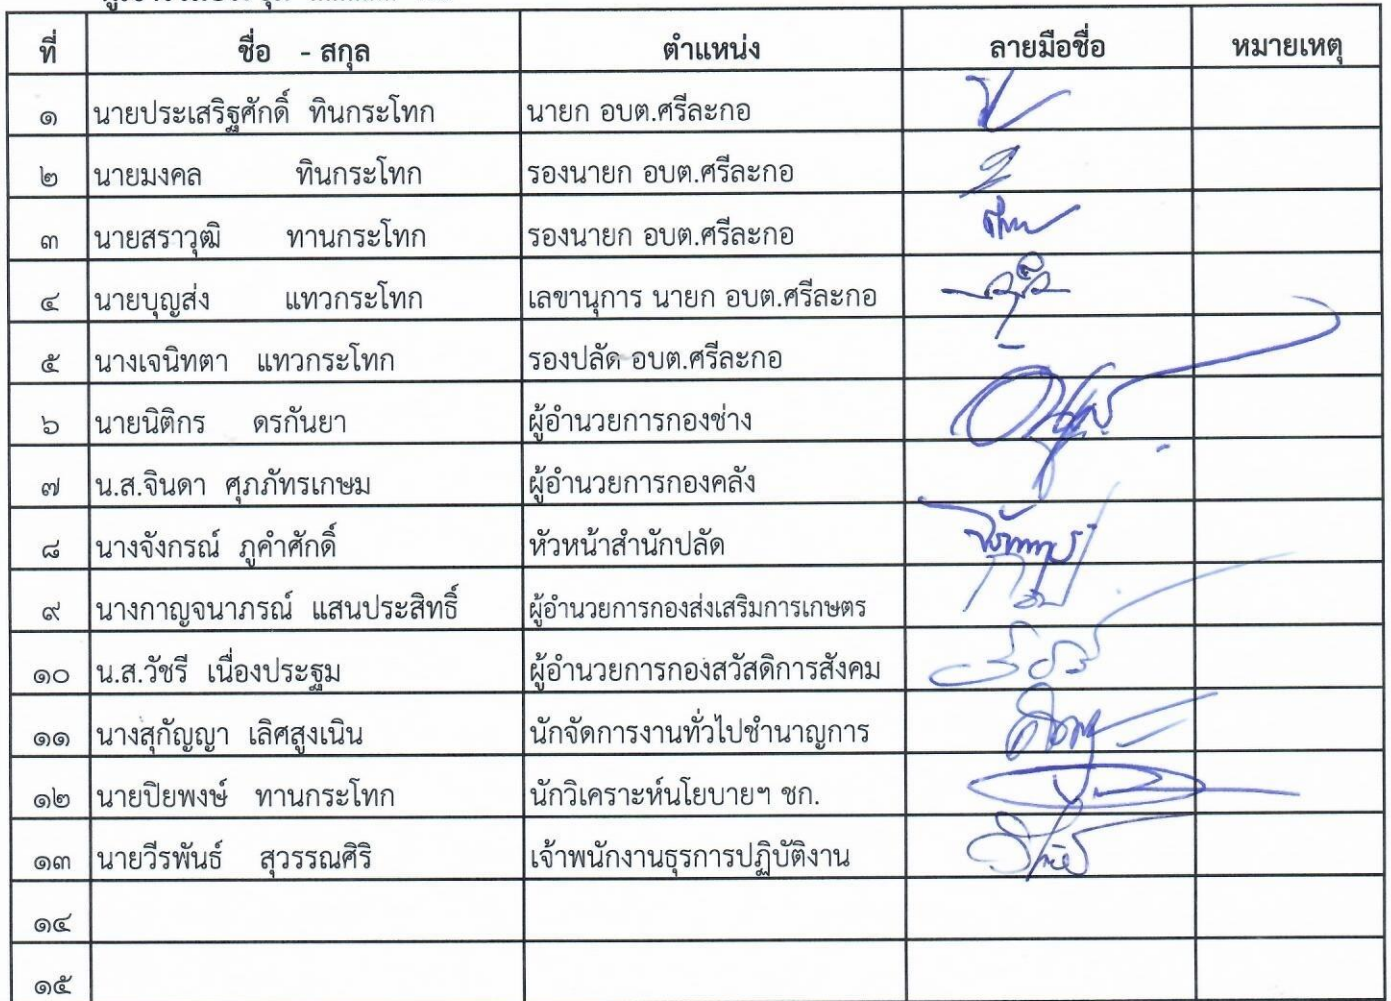 ที่ ชื่อ - สกุล ตำแหน่ง ลายมือชื่อ หมายเหตุ
๑ นายประเสริฐศักดิ์ ทินกระโทก นายก อบต.ศรีละกอ
๒ นายมงคล ทินกระโทก รองนายก อบต.ศรีละกอ
๓ นายสราวุฒิ ทานกระโทก รองนายก อบต.ศรีละกอ
๔ นายบุญส่ง แทวกระโทก เลขานุการ นายก อบต.ศรีละกอ
๕ นางเจนิทตา แทวกระโทก รองปลัด อบต.ศรีละกอ
๖ นายนิติกร ดรกันยา ผู้อำนวยการกองช่าง
๗ น.ส.จินดา ศุภภัทรเกษม ผู้อำนวยการกองคลัง
๘ นางจังกรณ์ ภูคำศักดิ์ หัวหน้าสำนักปลัด
๙ นางกาญจนาภรณ์ แสนประสิทธิ์ ผู้อำนวยการกองส่งเสริมการเกษตร
๑๐ น.ส.วัชรี เนื่องประฐม ผู้อำนวยการกองสวัสดิการสังคม
๑๑ นางสุกัญญา เลิศสูงเนิน นักจัดการงานทั่วไปชำนาญการ
๑๒ นายปิยพงษ์ ทานกระโทก นักวิเคราะห์นโยบายฯ ชก.
๑๓ นายวีรพันธ์ สุวรรณศิริ เจ้าพนักงานธุรการปฏิบัติงาน
๑๔
๑๕